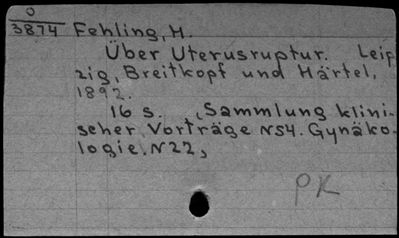 0
3874 Fehling, H.
Über Uterusruptur. Leip
zig, Breitkopf und Härtel,
1892.
16 s. (Sammlung klini-
scher Vorträge N54. Gynäko-
logie. N22,
PK